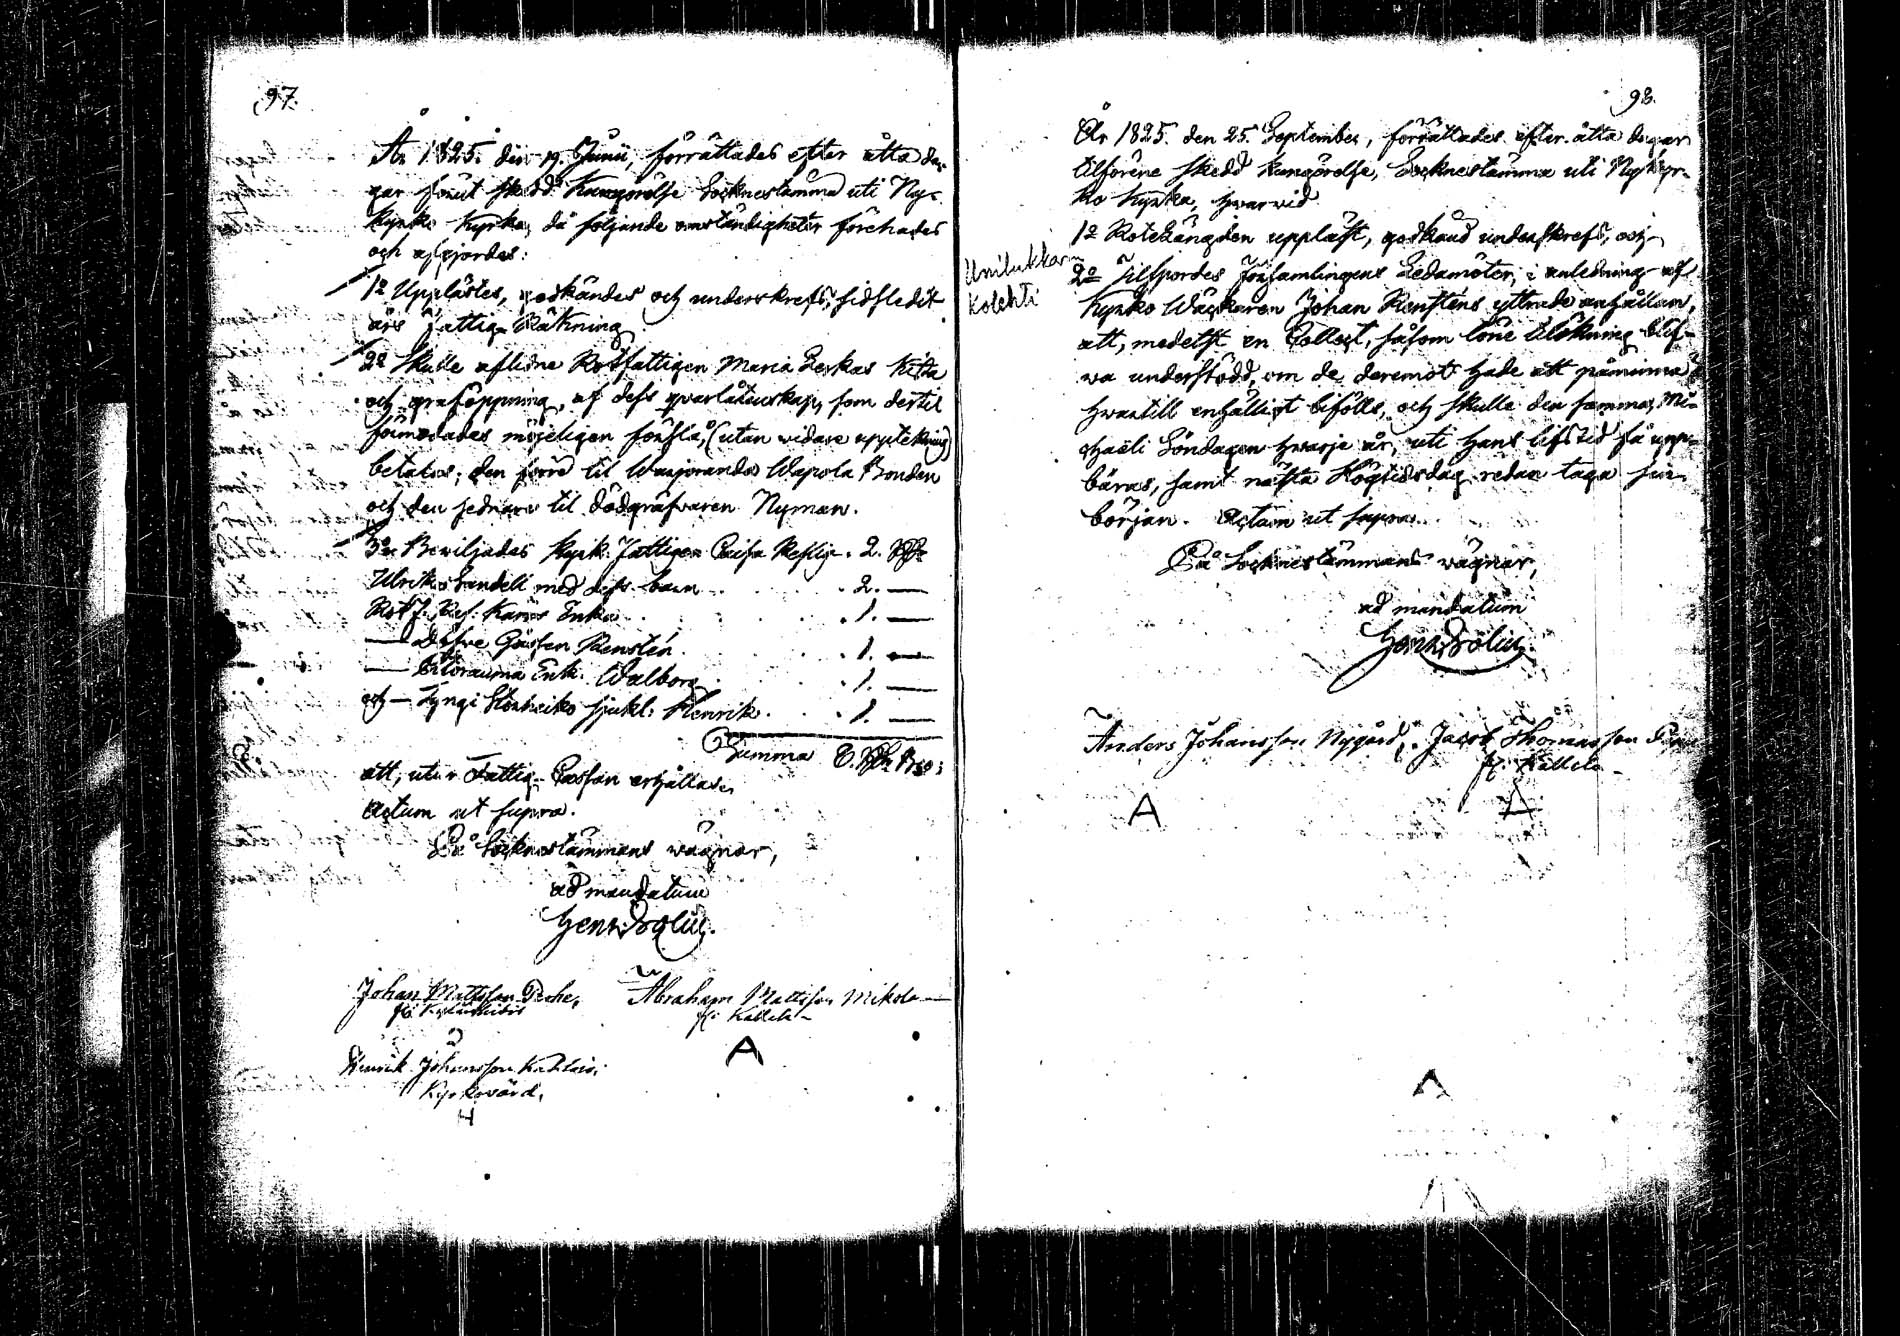 97.
År 1825. den 19. Junii, förrättades efter åtta da-
gar förut skedd Kungörelse Socknestämma uti Ny-
kyrko Kyrka, då följande omständigheter förehades
och afgjordes:
1o Upplästes, godkändes och underskrefs, sidstledit
års Fattig Räkning
2o Skulle aflidne Rotfattigen Maria Kista
och graföppning, af dess qvarlåtenskap, som dertil
förmodades möjeligen förslå, (utan widare uppteckning)
betalas; den förra til Wapola Bonden
och den sednare til dödgräfvaren Nyman.
3o Bewiljades Kyrk. Fattigen Caisa . 2.
Ulrika Sandell med dess barn . . . 2. —
Rotf. Enka . . . 1. —
— Gossen Renstén . . 1. —
— Enk. Walborg . . . 1. —
och — Lyngi sjukl. Henrik . . . 1. —
Summa
att, utur Fattig-Cassan erhållas.
Actum ut supra.
På Socknestämmans wägnar,
ad mandatum
Henr.
Johan Mattsson
Abraham Mattsson Mikola
fr. Kallela
A
Henrik Johansson
Kyrkovärd,
H
98.
År 1825. den 25. September, förrättades efter åtta dagar
tilförene skedd kungörelse, Socknestämma uti Nykyr-
ko Kyrka, hvarvid
1o Rotelängden uppläst, godkänd underskrefs, och
Unilukkarin
Kolehti
2o Tilspordes Församlingens Ledamöter, i anledning af
Kyrko Wäckaren Johan Rensténs yttrade anhållan,
att, medelst en Collect, såsom löne tilökning blif-
wa understödd, om de deremot hade att påminna?
hwartill enhälligt bifölls, och skulle den samma, Mi-
chaëli Söndagen hwarje år, uti hans lifstid få upp-
bäras, samt nästa Högtidsdag redan taga sin
början. Actum ut supra.
På Socknestämmans wägnar,
ad mandatum
Henr.
Anders Johansson Nygård, Jacob Thomasson
fr. Kallela
A
A